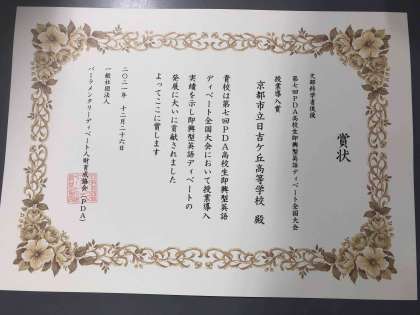 賞状
文部科学省後援
第七回PDA高校生即興型英語ディベート全国大会
授業導入賞
京都市立日吉ケ丘高等学校 殿
貴校は第七回PDA高校生即興型英語
ディベート全国大会において授業導入
実績を示し即興型英語ディベートの
発展に大いに貢献されました
よってここに賞します
二〇二一年 十二月二十六日
一般社団法人
パーラメンタリーディベート人財育成協会(PDA)